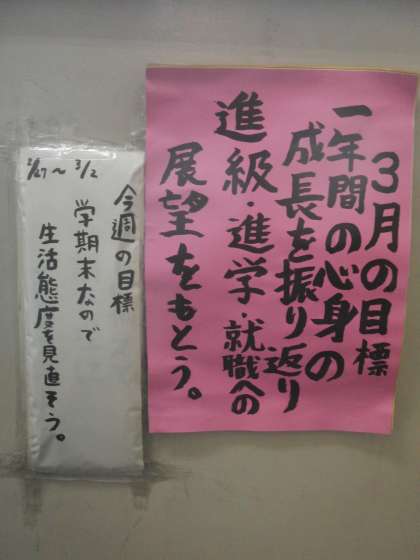 3月の目標
一年間の心身の
成長を振り返り
進級・進学・就職への
展望をもとう。
2/27～3/2
今週の目標
学期末なので
生活態度を見直そう。